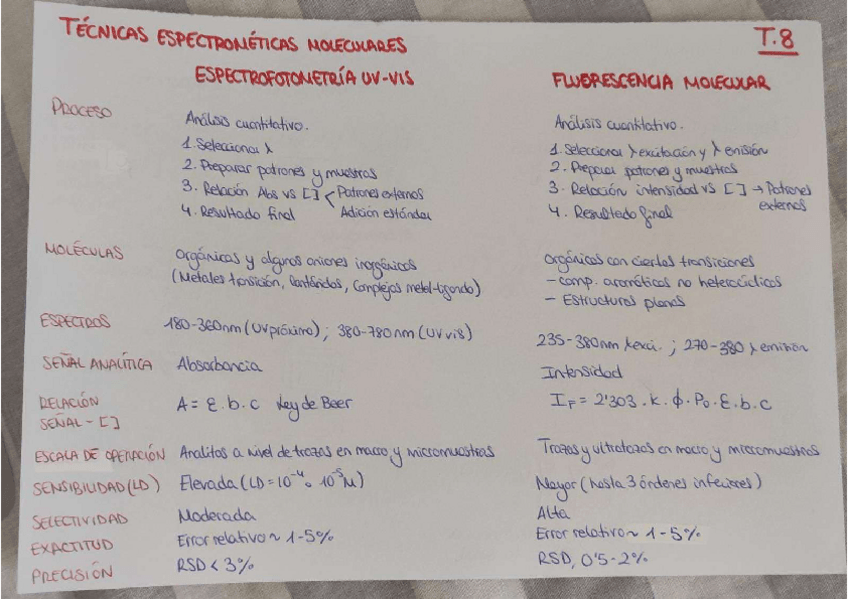 TÉCNICAS ESPECTROMÉTICAS MOLECULARES
T.8
ESPECTROFOTOMETRÍA UV-VIS
FLUORESCENCIA MOLECULAR
PROCESO
Análisis cuantitativo.
1. Seleccionar λ
2. Preparar patrones y muestras
3. Relación Abs vs [] < Patrones externos
Adición estándar
4. Resultado final
Análisis cuantitativo.
1. Seleccionar λ excitación y λ emisión
2. Preparar patrones y muestras
3. Relación intensidad vs [] → Patrones
externos
4. Resultado final
MOLÉCULAS
Orgánicas y algunos aniones inorgánicos
(Metales transición, lantánidos, Complejos metal-ligando)
Orgánicas con ciertas transiciones
- comp. aromáticos no heterocíclicos
- Estructuras planas
ESPECTROS
180-360nm (UV próximo) ; 380-780nm (UV vis)
235-380nm λexci. ; 270-380 λ emisión
SEÑAL ANALÍTICA
Absorbancia
Intensidad
RELACIÓN
SEÑAL - []
A = Ɛ. b. c Ley de Beer
IF = 2'303 . k. ϕ. P₀. Ɛ. b. c
ESCALA DE OPERACIÓN
Analitos a nivel de trazas en macro y micromuestras
Trazas y ultratrazas en macro y micromuestras
SENSIBILIDAD (LD)
Elevada (LD = 10⁻⁴ o 10⁻⁵M)
Mayor (hasta 3 órdenes inferiores)
SELECTIVIDAD
Moderada
Alta
EXACTITUD
Error relativo ~ 1-5%
Error relativo ~ 1-5%
PRECISIÓN
RSD < 3%
RSD, 0'5-2%